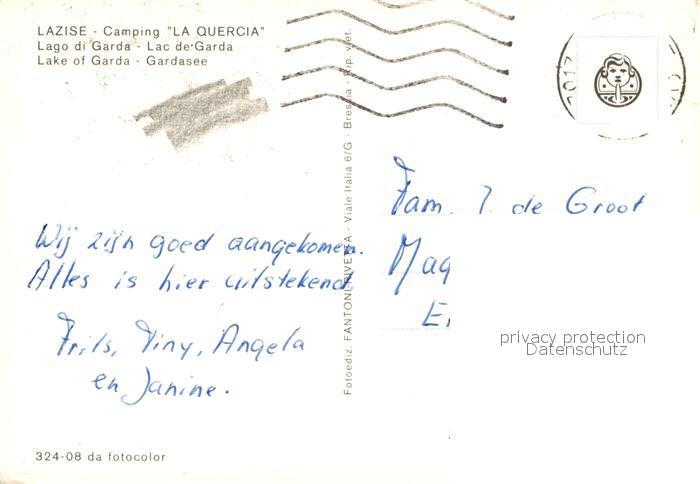 LAZISE - Camping "LA QUERCIA"
Lago di Garda - Lac de Garda
Lake of Garda - Gardasee
Wij zijn goed aangekomen.
Alles is hier uitstekend
Frits, Tiny, Angela
en Janine.
324-08 da fotocolor
Fotoediz. FANTONI - Viale Italia 6/G - Brescia - Rip. viet.
Fam. J. de Groot
Maq
E.
privacy protection
Datenschutz